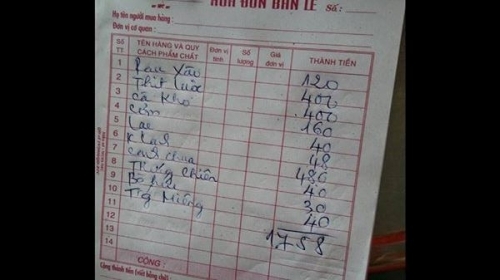 HÓA ĐƠN BÁN LẺ Số:
Họ tên người mua hàng :
Đơn vị cơ quan :
Số TT TÊN HÀNG VÀ QUY CÁCH PHẨM CHẤT Đơn vị tính Số lượng Giá đơn vị THÀNH TIỀN
1 Rau Xào 120
2 Thịt luộc 400
3 Cá Kho 400
4 Cơm 160
5 40
6 Khăn 48
7 Canh chua 480
8 Trứng Chiên 40
9 30
10 40
11
12 1758
13
14
CỘNG :
Cộng thành tiền (viết bằng chữ) :